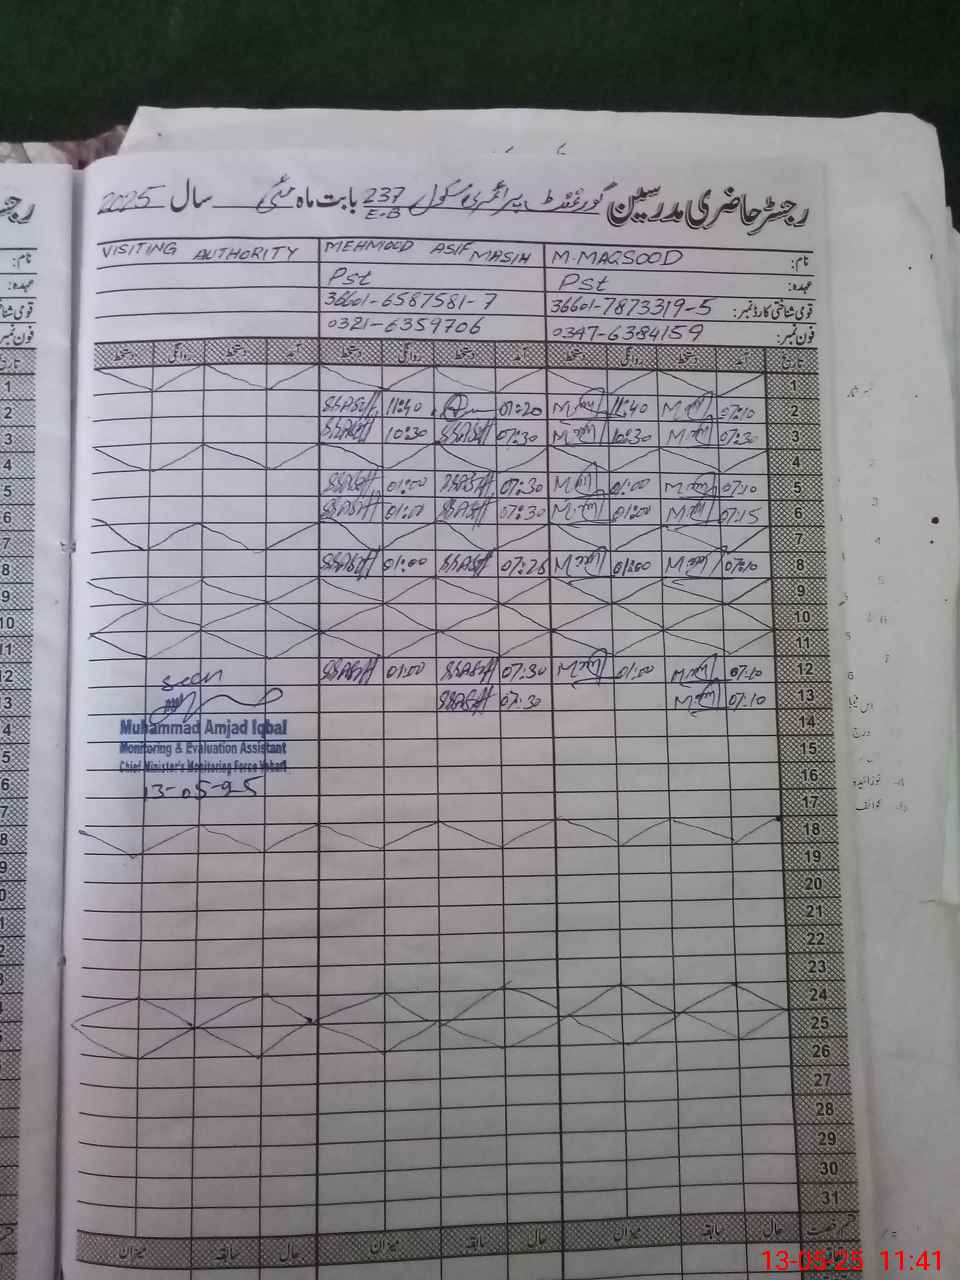 رجسٹر حاضری مدرسین گورنمنٹ پرائمری سکول 237 E.B بابت ماہ مئی سال 2025
نام: M-MAQSOOD MEHMOOD ASIF MASIH VISITING AUTHORITY
عہدہ: Pst Pst
قومی شناختی کارڈ نمبر: 36601-7873319-5 36601-6587581-7
فون نمبر: 0347-6384159 0321-6359706
تاریخ آمد دستخط روانگی دستخط آمد دستخط روانگی دستخط آمد دستخط روانگی دستخط
1
2 07:10 11:40 07:20 11:40
3 07:30 10:30 07:30 10:30
4
5 07:10 01:00 07:30 01:00
6 07:15 01:00 07:30 01:00
7
8 07:10 01:00 07:26 01:00
9
10
11
12 07:10 01:00 07:30 01:00
seen
13 07:10 07:30
Muhammad Amjad Iqbal
14
Monitoring & Evaluation Assistant
15
Chief Minister's Monitoring Force
16
13-05-25
17
18
19
20
21
22
23
24
25
26
27
28
29
30
31
رخصت حال سابقہ میزان حال سابقہ میزان حال سابقہ میزان
13-05-25 11:41